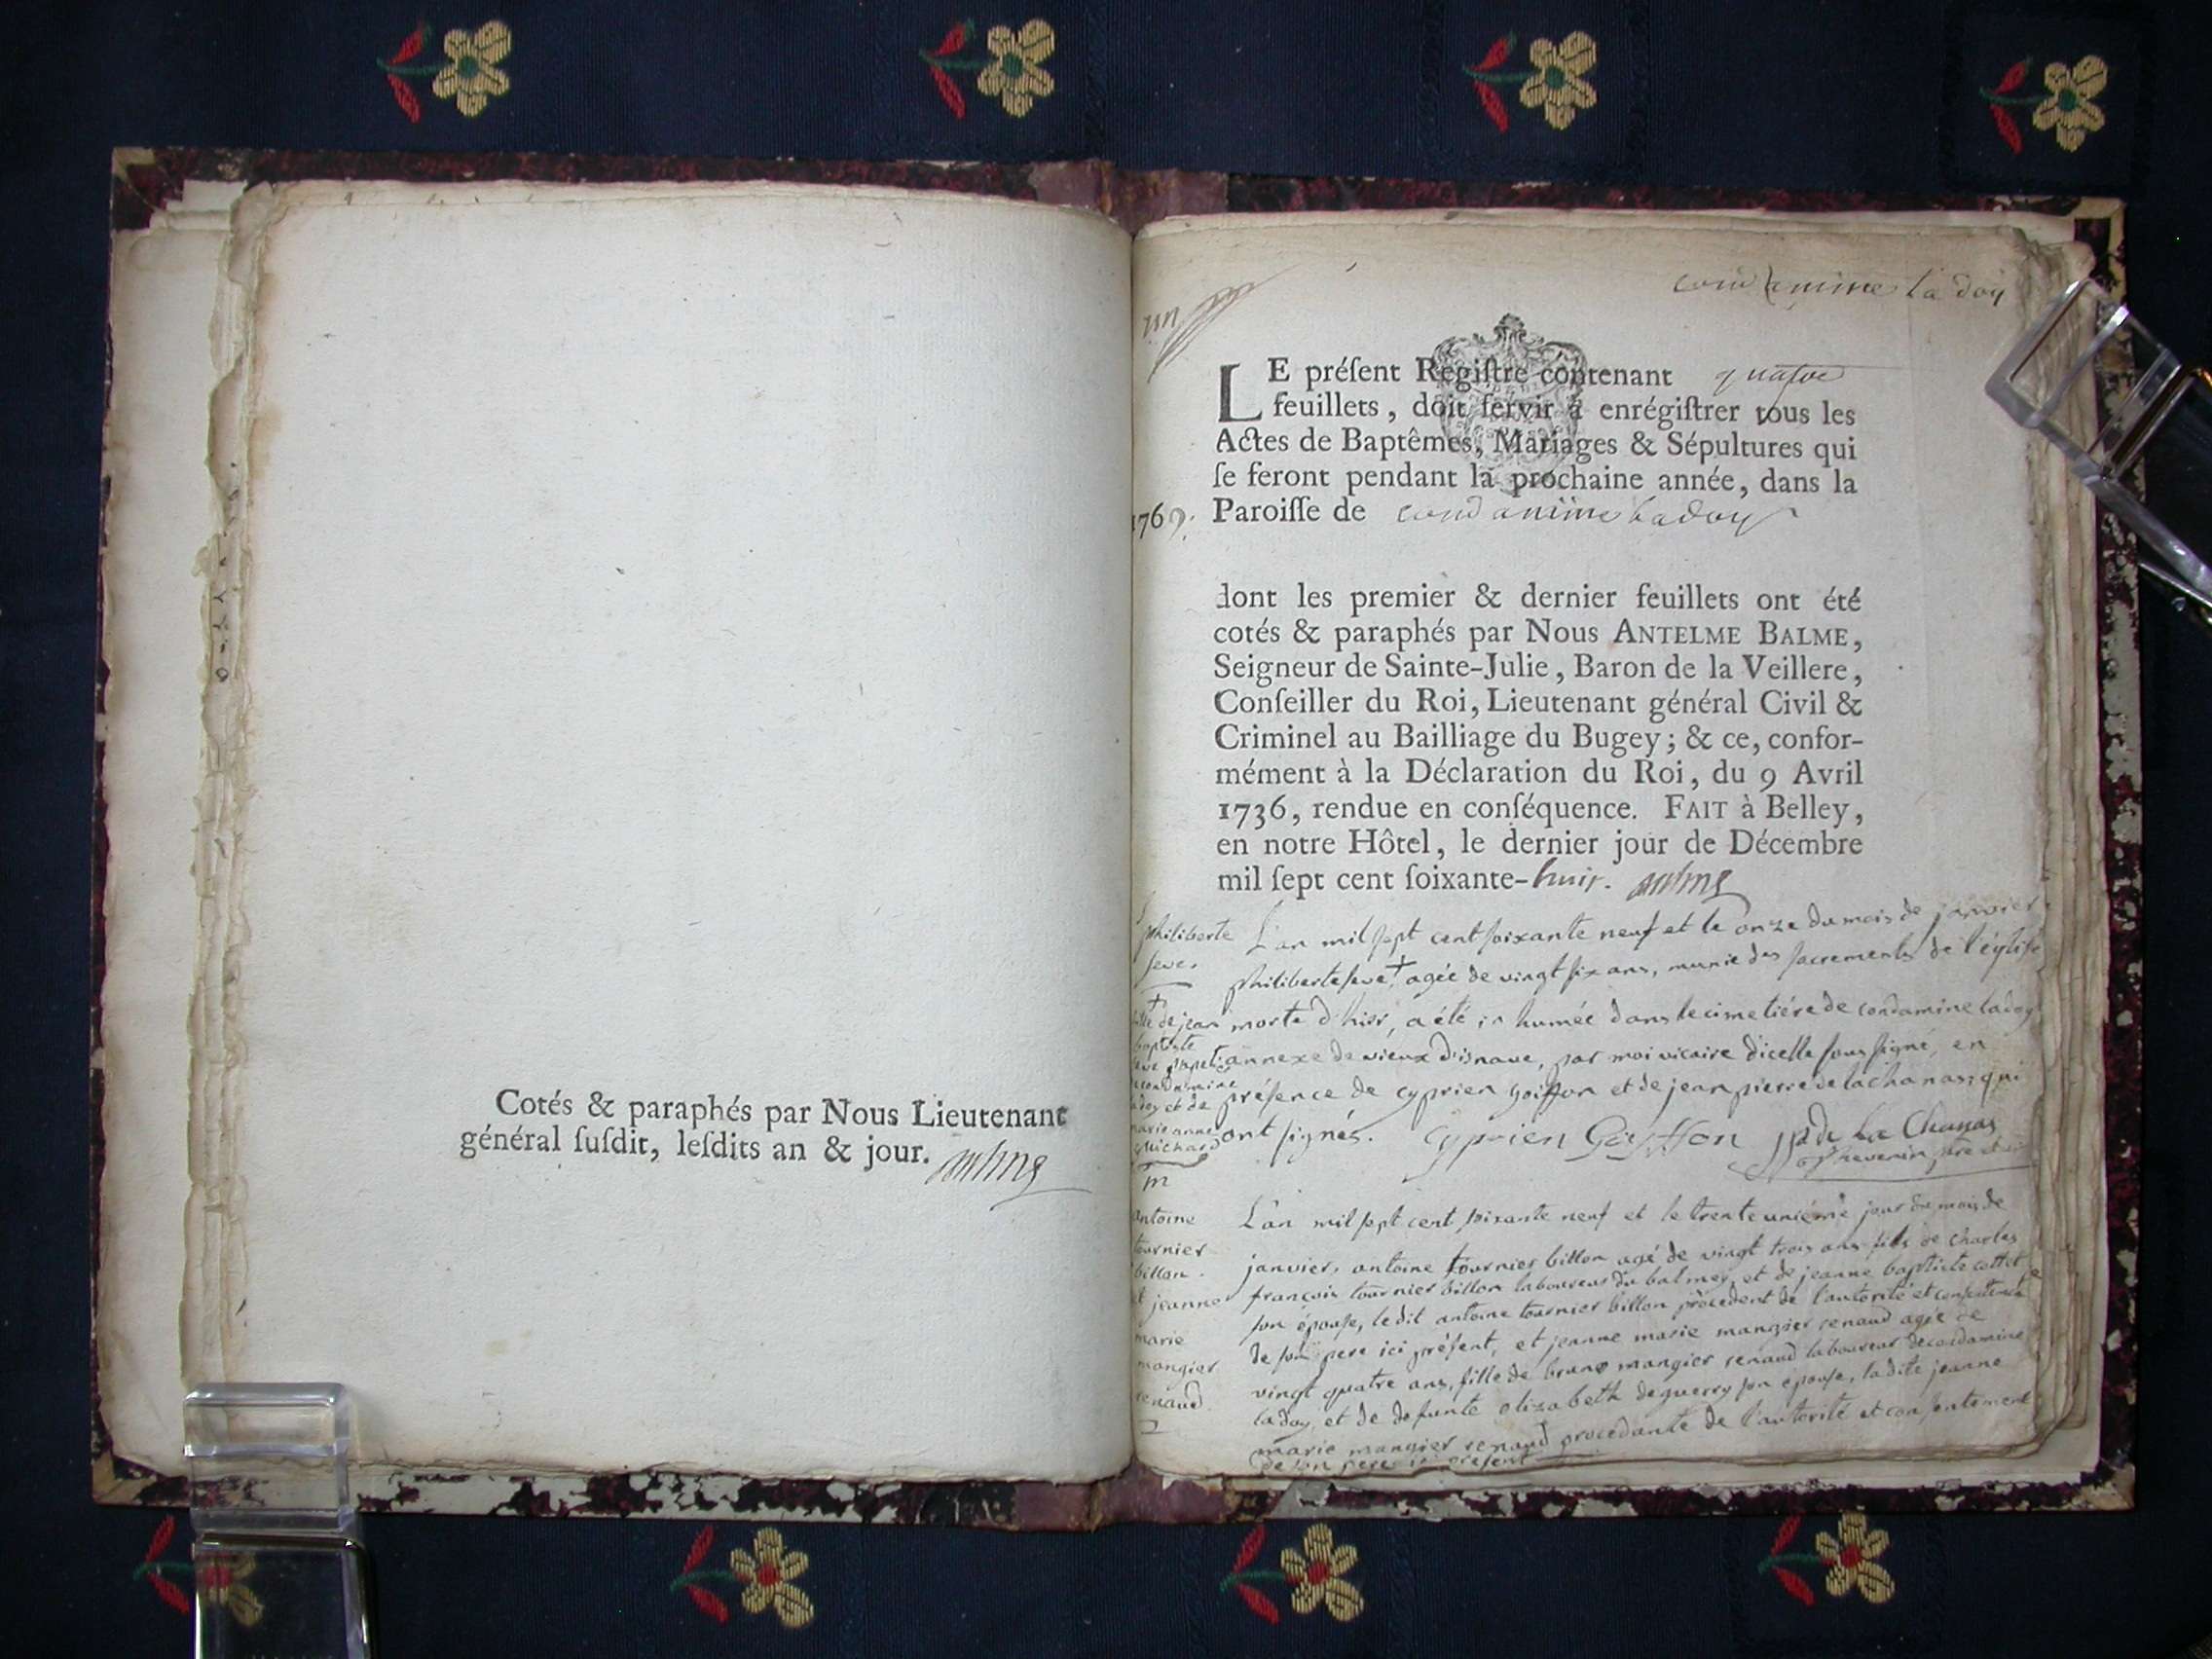 Cotés & paraphés par Nous Lieutenant
général ſuſdit, leſdits an & jour.
condamine la doy
un
LE préſent Regiſtre contenant quatre
feuillets, doit ſervir à enrégiſtrer tous les
Actes de Baptêmes, Mariages & Sépultures qui
ſe feront pendant la prochaine année, dans la
1769. Paroiſſe de condamine ladoy
dont les premier & dernier feuillets ont été
cotés & paraphés par Nous ANTELME BALME,
Seigneur de Sainte-Julie, Baron de la Veillere,
Conſeiller du Roi, Lieutenant général Civil &
Criminel au Bailliage du Bugey; & ce, confor-
mément à la Déclaration du Roi, du 9 Avril
1736, rendue en conſéquence. FAIT à Belley,
en notre Hôtel, le dernier jour de Décembre
mil ſept cent ſoixante-huit.
philiberte
seve.
fille de jean
baptiste
seve
condamine
ladoy et de
marie anne
Michard
L'an mil sept cent soixante neuf et le onze du mois de janvier
philiberte seve + agée de vingt six ans, munie des sacrements de l'église
morte d'hier, a été inhumée dans le cimetiére de condamine ladoy
annexe de vieux d'isnave, par moi vicaire dicelle soussigné, en
présence de cyprien goiffon et de jean pierre de lachanas; qui
ont signés. Cyprien Goyffon JP de La Chanas
Thevenin ptre
m
antoine
tournier
billon.
et jeanne
marie
mangier
renaud.
L'an mil sept cent soixante neuf et le trente uniéme jour du mois de
janvier, antoine tournier billon agé de vingt trois ans fils de charles
françois tournier billon laboureur du balmey, et de jeanne baptiste cottet
son épouse, ledit antoine tournier billon procedent de l'autorité et consentement
de son pere ici présent, et jeanne marie mangier renaud agée de
vingt quatre ans, fille de bruno mangier renaud laboureur de condamine
ladoy, et de defunte elizabeth deguerry son epouse, ladite jeanne
marie mangier renaud procedante de l'autorité et consentement
de son pere ici présent